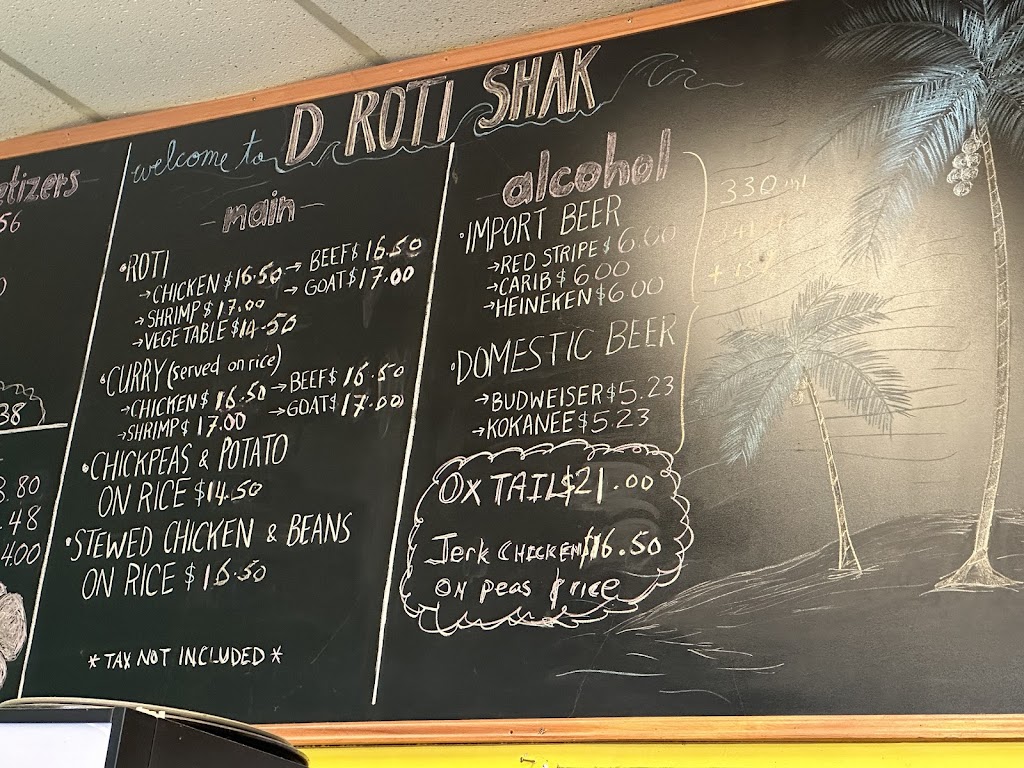 welcome to D ROTI SHAK
etizers
56
38
.80
.48
4.00
- main -
• ROTI
→ CHICKEN $16.50 → BEEF $16.50
→ SHRIMP $17.00 → GOAT $17.00
→ VEGETABLE $14.50
• CURRY (served on rice)
→ CHICKEN $16.50 → BEEF $16.50
→ SHRIMP $17.00 → GOAT $17.00
• CHICKPEAS & POTATO
ON RICE $14.50
• STEWED CHICKEN & BEANS
ON RICE $16.50
* TAX NOT INCLUDED *
- alcohol
• IMPORT BEER
→ RED STRIPE $6.00
→ CARIB $6.00
→ HEINEKEN $6.00
330 ml
• DOMESTIC BEER
→ BUDWEISER $5.23
→ KOKANEE $5.23
OX TAIL $21.00
Jerk CHICKEN $16.50
ON peas & rice